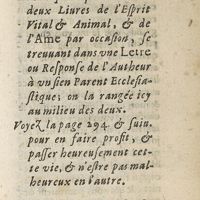 deux Livres de l'Esprit
Vital & Animal, & de
l'Ame par occasion, se
treuuant dans vne Letre
ou Response de l'Autheur
à vn sien Parent Ecclesia-
stique; on la rangée icy
au milieu des deux.
Voyez la page 294 & suiu.
pour en faire profit, &
passer heureusement cet-
te vie, & n'estre pas mal-
heureux en l'autre.